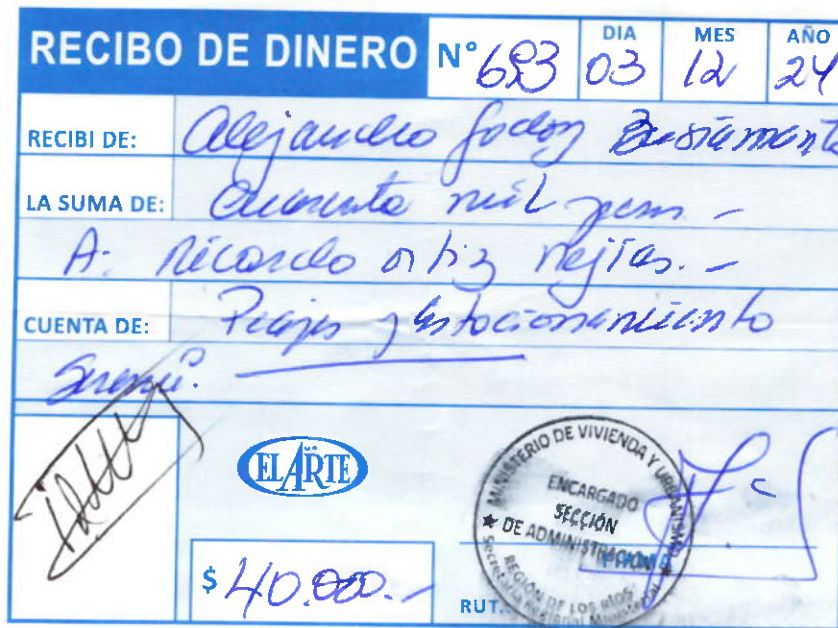 RECIBO DE DINERO N° 693 DIA 03 MES 12 AÑO 24
RECIBI DE: Alejandro Godoy Bustamante
LA SUMA DE: Cuarenta mil pesos -
A: Ricardo Ortiz Mejías. -
CUENTA DE: Peajes y Estacionamiento
Seremi.
EL ARTE
MINISTERIO DE VIVIENDA Y URBANISMO
ENCARGADO
SECCIÓN
DE ADMINISTRACIÓN
REGIÓN DE LOS RÍOS
Secretaría Regional Ministerial
FIRMA
$ 40.000.-
RUT.